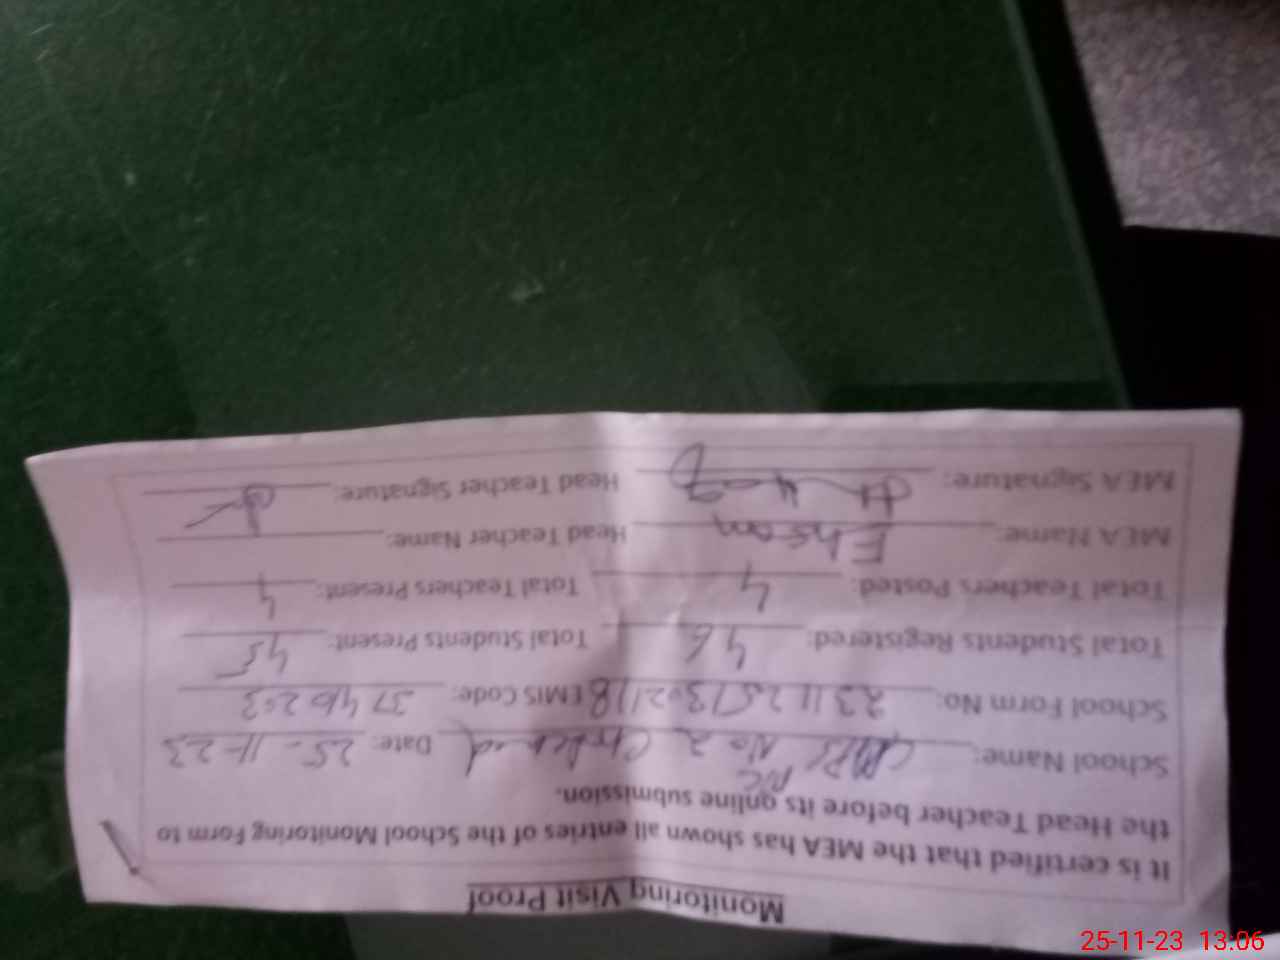 Monitoring Visit Proof
It is certified that the MEA has shown all entries of the School Monitoring Form to
the Head Teacher before its online submission.
School Name: No 2 Date: 25-11-23
School Form No: EMIS Code: 37410203
Total Students Registered: 46 Total Students Present: 45
Total Teachers Posted: 4 Total Teachers Present: 4
MEA Name: Ehsan Head Teacher Name:
MEA Signature: Head Teacher Signature:
25-11-23 13:06